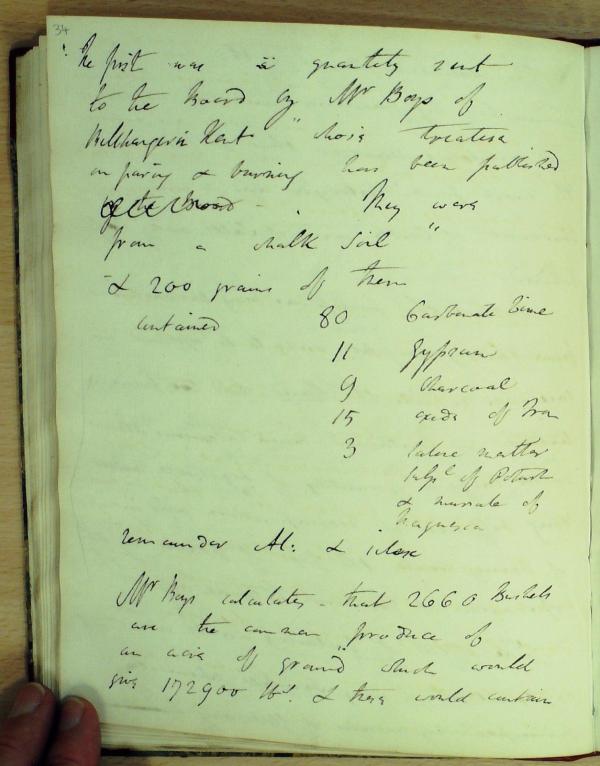 34
The first was a quantity sent
to the Board by Mr Boys of
Betthanger in Kent whose treatise
on paring & burning has been published
by the Board - . They were
from a chalk soil
& 200 grains of them
contained 80 Carbonate Lime
11 Gypsum
9 Charcoal
15 oxide of Iron
3 saline matter
sulpt of Potash
& muriate of
Magnesia
remainder Al: & silex
Mr Boys calculates - that 2660 Bushels
are the common produce of
an acre of ground which would
give 172900 lbs. & these would contain